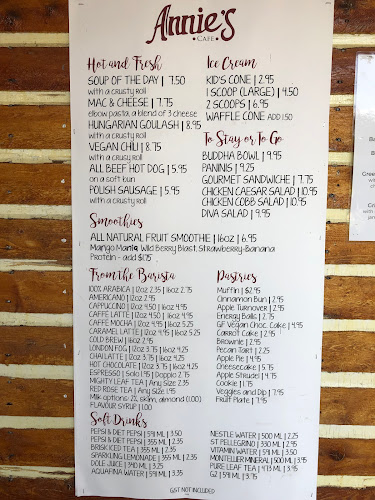 Annie's
• CAFE •
Hot and Fresh
SOUP OF THE DAY | 7.50
with a crusty roll
MAC & CHEESE | 7.75
elbow pasta, a blend of 3 cheese
HUNGARIAN GOULASH | 8.95
with a crusy roll
VEGAN CHILI | 8.75
with a crusy roll
ALL BEEF HOT DOG | 5.95
on a soft bun
POLISH SAUSAGE | 5.95
with a crusty roll
Ice Cream
KID'S CONE | 2.95
1 SCOOP (LARGE) | 4.50
2 SCOOPS | 6.95
WAFFLE CONE ADD 1.50
To Stay or To Go
BUDDHA BOWL | 9.95
PANINIS | 9.25
GOURMET SANDWICHE | 7.75
CHICKEN CAESAR SALAD | 10.95
CHICKEN COBB SALAD | 10.95
DIVA SALAD | 9.95
Smoothies
ALL NATURAL FRUIT SMOOTHIE | 16oz | 6.95
Mango Mania, Wild Berry Blast, Strawberry-Banana
Protein - add $1.75
From the Barista
100% ARABICA | 12oz 2.35 | 16oz 2.75
AMERICANO | 12oz 2.95
CAPPUCCINO | 12oz 4.50 | 16oz 4.95
CAFFE LATTE | 12oz 4.50 | 16oz 4.95
CAFFE MOCHA | 12oz 4.95 | 16oz 5.25
CARAMEL LATTE | 12oz 4.95 | 16oz 5.25
COLD BREW | 16oz 2.95
LONDON FOG | 12oz 3.75 | 16oz 4.25
CHAI LATTE | 12oz 3.75 | 16oz 4.25
HOT CHOCOLATE | 12oz 3.75 | 16oz 4.25
ESPRESSO | Solo 1.95 | Doppio 2.75
MIGHTY LEAF TEA | Any Size 2.35
RED ROSE TEA | Any Size 1.95
Milk options: 2%, skim, almond (1.00)
FLAVOUR SYRUP | 1.00
Pastries
Muffin | $2.95
Cinnamon Bun | 2.95
Apple Turnover | 2.95
Energy Balls | 2.75
GF Vegan Choc. Cake | 4.95
Carrot Cake | 2.95
Brownie | 2.95
Pecan Tart | 2.25
Apple Pie | 4.95
Cheesecake | 5.75
Apple Strudle | 4.75
Cookie | 1.75
Veggies and Dip | 7.95
Fruit Plate | 7.95
Soft Drinks
PEPSI & DIET PEPSI | 591 ML | 3.50
PEPSI & DIET PEPSI | 355 ML | 2.35
BRISK ICED TEA | 355 ML | 2.35
SPARKLING LEMONADE | 355 ML | 2.35
DOLE JUICE | 340 ML | 3.25
AQUAFINA WATER | 591 ML | 3.35
NESTLE WATER | 500 ML | 2.25
ST PELLEGRINO | 330 ML | 2.95
VITAMIN WATER | 591 ML | 3.50
MONTELLIER MINERAL | 500 ML | 3.75
PURE LEAF TEA | 473 ML | 3.95
G2 | 591 ML | 3.75
GST NOT INCLUDED